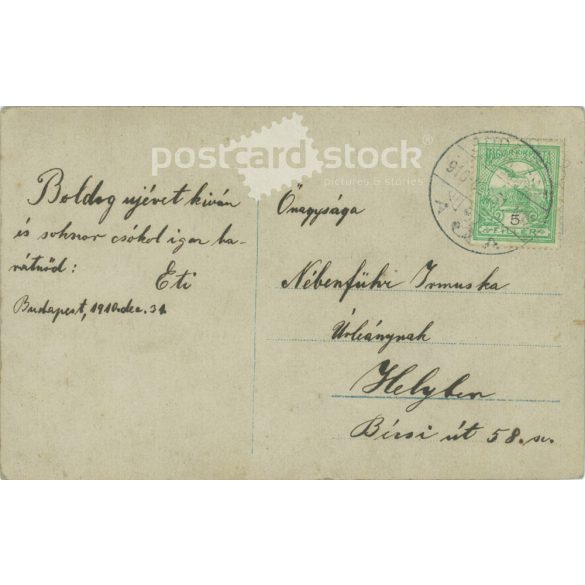 postcard stock®
pictures & stories
Boldog ujévet kiván
és sokszor csókol igaz ba-
rátnőd:
Eti
Budapest, 1910. dec. 31.
Önagysága
Irmuska
Úrleánynak
Helyben
Bécsi út 58. sz.
MAGYAR KIR. POSTA
5
FILLÉR